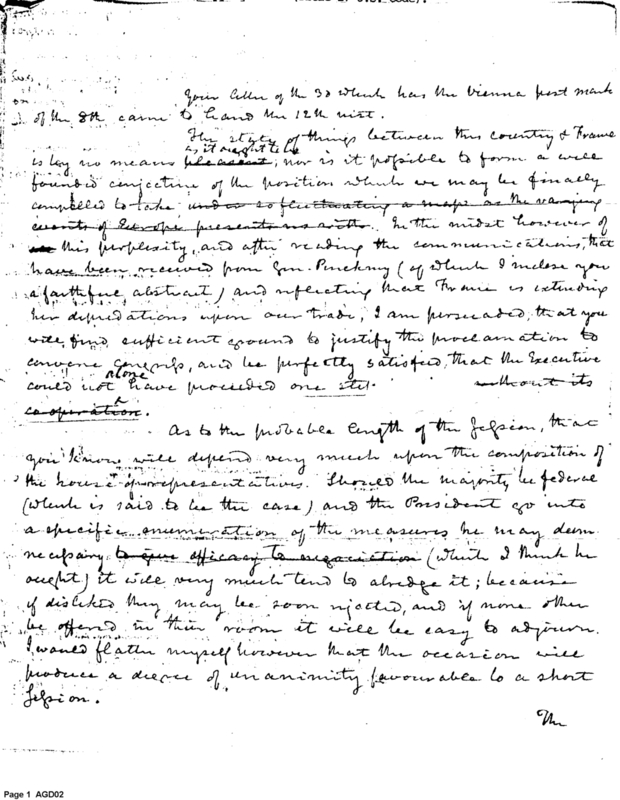 Your letter of the 3d which has the Vienna post mark
of the 8th came to hand the 12th inst.
The state of things between this country & France
as it ought to be
is by no means pleasant; nor is it possible to form a well
founded conjecture of the position which we may be finally
compelled to take under so fluctuating a map as the varying
events of Europe presents us with. In the midst however of
this perplexity, and after reading the communications, that
have been received from Gen. Pinckney (of which I inclose you
a faithful abstract) and reflecting that France is extending
her depredations upon our trade, I am persuaded, that you
will find sufficient ground to justify the proclamation to
convene Congress, and be perfectly satisfied, that the Executive
alone
could not have proceeded one step. without its
co-operation.
As to the probable length of the Session, that
you know will depend very much upon the composition of
the house of representatives. Should the majority be federal
(which is said to be the case) and the President go into
a specific enumeration of the measures he may deem
necessary to give efficacy to negociation (which I think he
ought) it will very much tend to abridge it; because
if disliked they may be soon rejected, and if none other
be offered in their room it will be easy to adjourn.
I would flatter myself however that the occasion will
produce a degree of unanimity favourable to a short
Session.
The
Page 1 AGD02